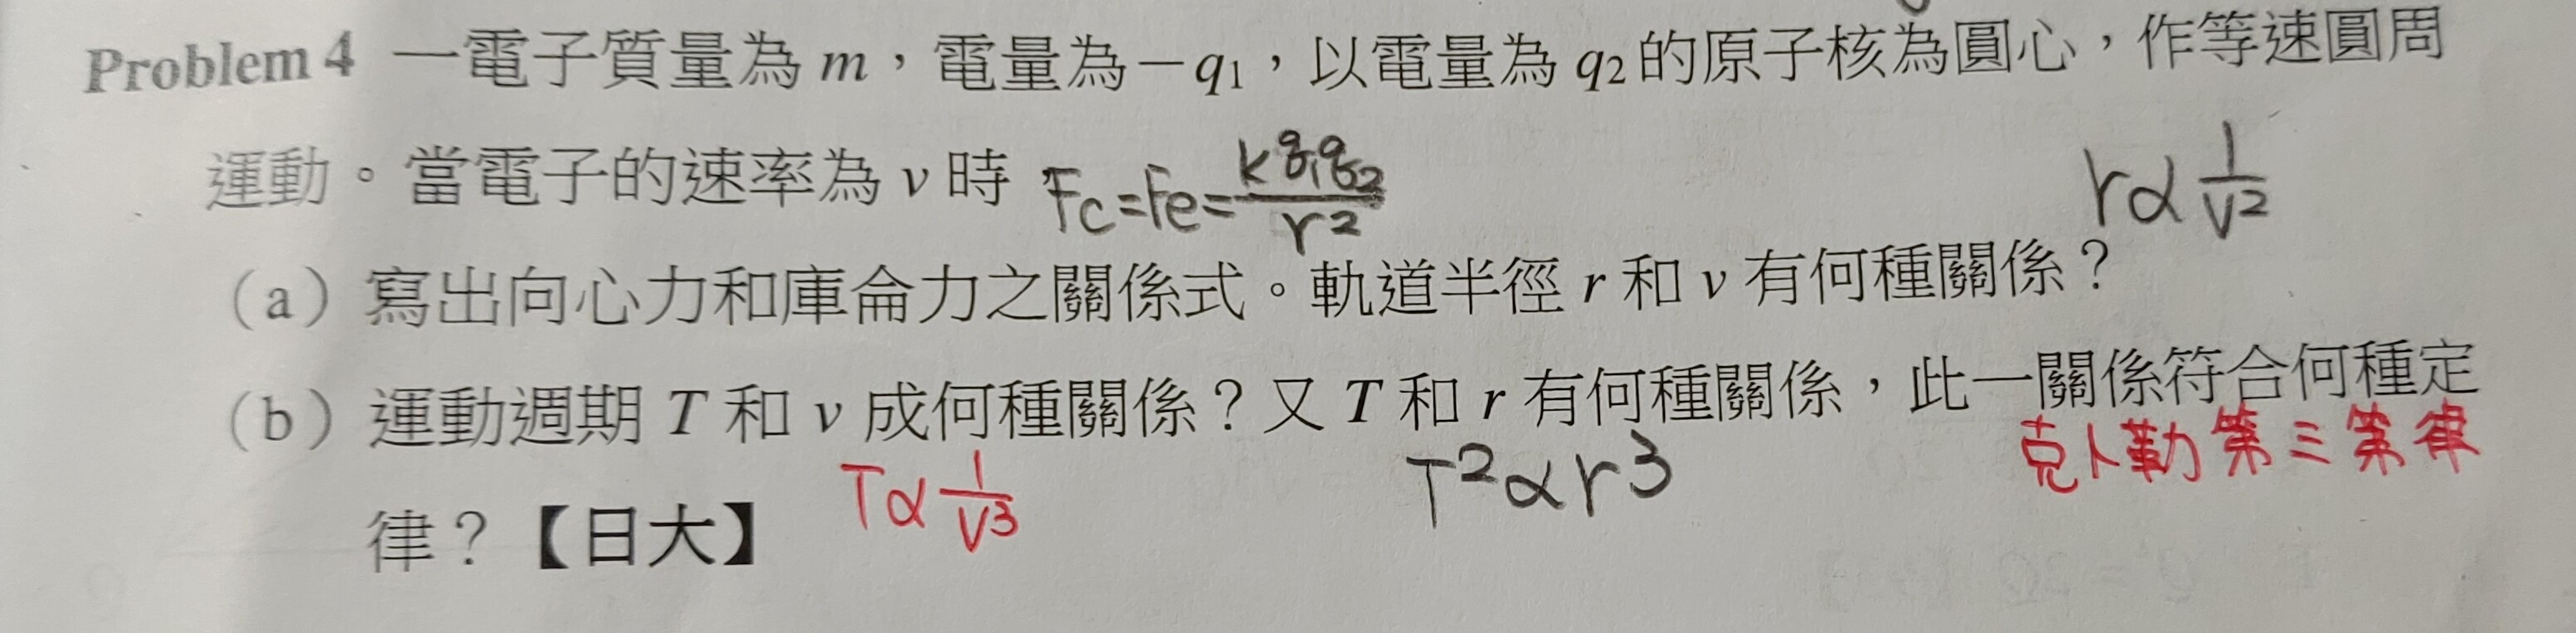 Problem 4 一電子質量為 m，電量為－q₁，以電量為 q₂的原子核為圓心，作等速圓周
運動。當電子的速率為 v 時 Fc=Fe=kq₁q₂/r² r∝1/v²
（a）寫出向心力和庫侖力之關係式。軌道半徑 r 和 v 有何種關係？
（b）運動週期 T 和 v 成何種關係？又 T 和 r 有何種關係，此一關係符合何種定
T∝1/v³ T²∝r³ 克卜勒第三第律
律？【日大】